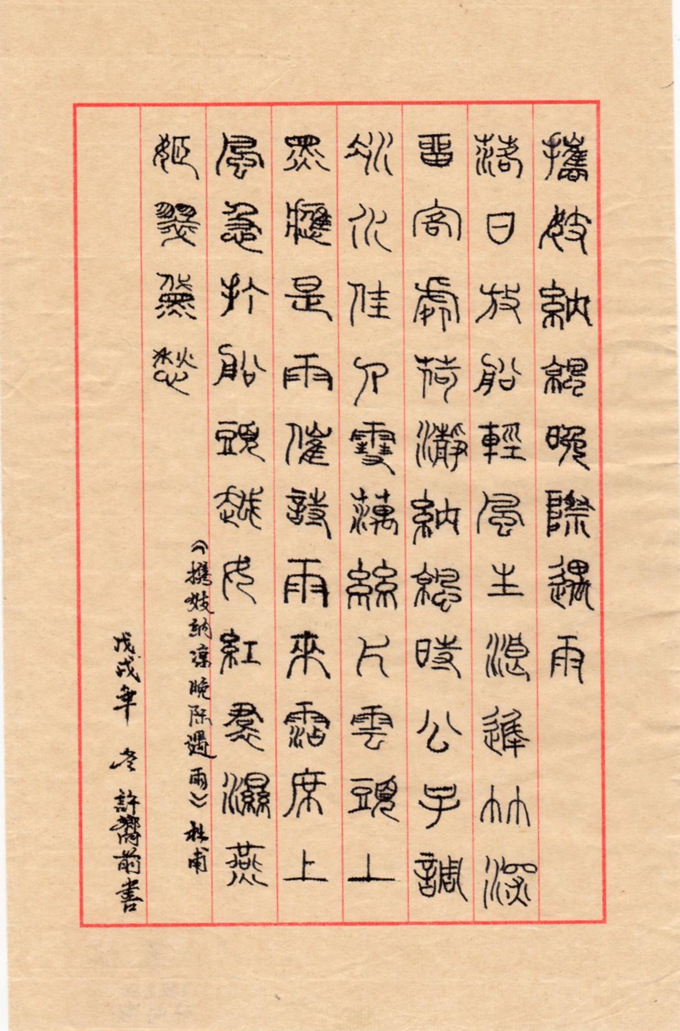 攜妓納涼晚際遇雨
落日放船輕風生浪遲竹深
留客處荷瀞納涼時公子調
冰水佳人雪藕絲片雲頭上
黑應是雨催詩雨來霑席上
風急打船頭越女紅裙濕燕
姬翠黛愁
《携妓納凉晚际遇雨》杜甫
戊戌年 冬 許 前書